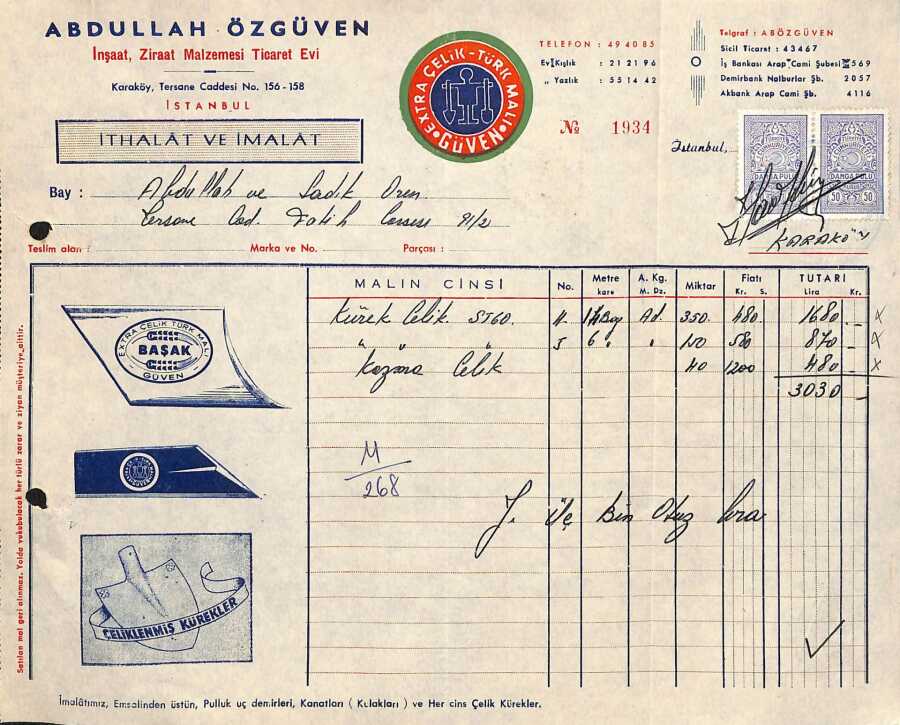 ABDULLAH ÖZGÜVEN
İnşaat, Ziraat Malzemesi Ticaret Evi
Karaköy, Tersane Caddesi No. 156-158
İSTANBUL
İTHALÂT VE İMALÂT
EXTRA ÇELİK-TÜRK MALI
GÜVEN
TELEFON : 49 40 85
Ev Kışlık : 21 21 96
„ Yazlık : 55 14 42
№ 1934
Telgraf : ABÖZGÜVEN
Sicil Ticaret : 43467
İş Bankası Arap Cami Şubesi 569
Demirbank Nalburlar Şb. 2057
Akbank Arap Cami Şb. 4116
İstanbul,
DAMGA PULU
50 50
KARAKÖY
Bay : Abdullah ve Sadık Ören
Tersane Cad. Fatih Çarşısı 91/2
Teslim alan : Marka ve No. Parçası :
MALIN CİNSİ No. Metre kare A. Kg. M. Dz. Miktar Fiatı Kr. S. TUTARI Lira Kr.
Kürek Çelik ST60. 4 Ad. 350. 480 1680 _ x
" " 5 6 " " 150 580 870 _ x
Kazma Çelik 40 1200 480 _ x
3030 _
M
268
Y. Üç Bin Otuz lira
EXTRA ÇELİK TÜRK MALI
BAŞAK
GÜVEN
ÇELİKLENMİŞ KÜREKLER
Satılan mal geri alınmaz. Yolda vukubulacak her türlü zarar ve ziyan müşteriye aittir.
İmalâtımız, Emsalinden üstün, Pulluk uç demirleri, Kanatları ( Kulakları ) ve Her cins Çelik Kürekler.